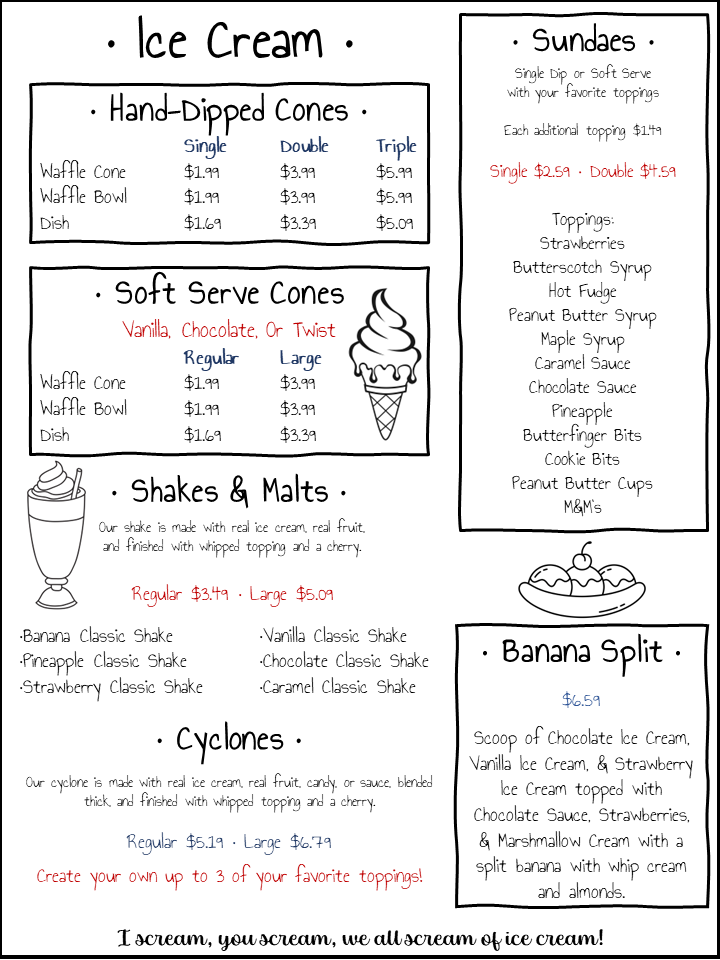 · Ice Cream ·
· Hand-Dipped Cones ·
Single Double Triple
Waffle Cone $1.99 $3.99 $5.99
Waffle Bowl $1.99 $3.99 $5.99
Dish $1.69 $3.39 $5.09
· Soft Serve Cones
Vanilla, Chocolate, Or Twist
Regular Large
Waffle Cone $1.99 $3.99
Waffle Bowl $1.99 $3.99
Dish $1.69 $3.39
· Shakes & Malts ·
Our shake is made with real ice cream, real fruit,
and finished with whipped topping and a cherry.
Regular $3.49 · Large $5.09
·Banana Classic Shake
·Pineapple Classic Shake
·Strawberry Classic Shake
·Vanilla Classic Shake
·Chocolate Classic Shake
·Caramel Classic Shake
· Cyclones ·
Our cyclone is made with real ice cream, real fruit, candy, or sauce, blended
thick, and finished with whipped topping and a cherry.
Regular $5.19 · Large $6.79
Create your own up to 3 of your favorite toppings!
· Sundaes ·
Single Dip or Soft Serve
with your favorite toppings
Each additional topping $1.49
Single $2.59 · Double $4.59
Toppings:
Strawberries
Butterscotch Syrup
Hot Fudge
Peanut Butter Syrup
Maple Syrup
Caramel Sauce
Chocolate Sauce
Pineapple
Butterfinger Bits
Cookie Bits
Peanut Butter Cups
M&M's
· Banana Split ·
$6.59
Scoop of Chocolate Ice Cream,
Vanilla Ice Cream, & Strawberry
Ice Cream topped with
Chocolate Sauce, Strawberries,
& Marshmallow Cream with a
split banana with whip cream
and almonds.
I scream, you scream, we all scream of ice cream!